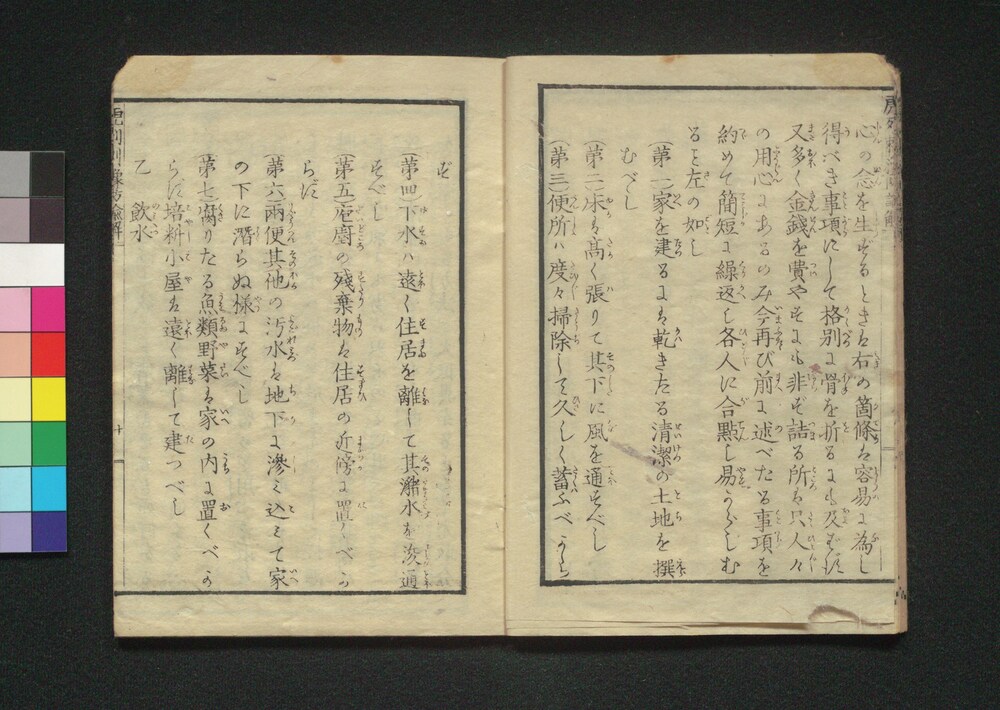 心の念を生ずるときは右の箇條は容易に為し
得べき事項にして格別に骨を折るにも及ばず
又多く金錢を費やすにも非ず詰る所は只人々
の用心にあるのみ今再び前に述べたる事項を
約めて簡短に繰返し各人に合點し易からしむ
ると左の如し
(第一)家を建るには乾きたる清潔の土地を撰
むべし
(第二)床は高く張りて其下に風を通すべし
(第三)便所ハ度々掃除して久しく蓄ふべから
ず
(第四)下水ハ遠く住居を離して其瀦水を浚通
すべし
(第五)庖廚の殘棄物は住居の近傍に置くべか
らず
(第六)兩便其他の汚水は地下に滲み込みて家
の下に潛らぬ様にすべし
(第七)腐りたる魚類野菜は家の内に置くべか
らず培料小屋は遠く離して建つべし
乙 飲水
十